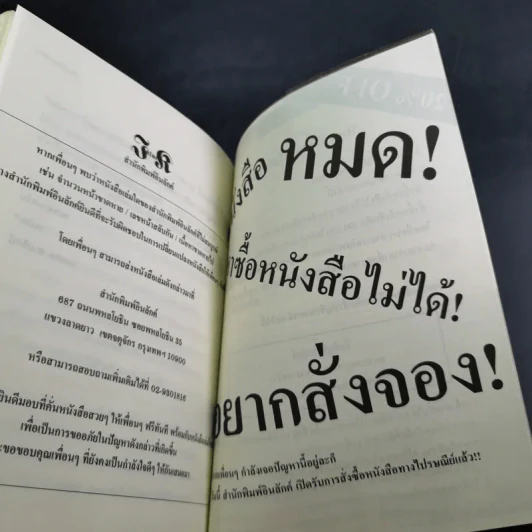 สำนักพิมพ์อินลักค์
หากเพื่อนๆ พบว่าหนังสือเล่มใดของสำนักพิมพ์อินลักค์
เช่น จำนวนหน้าขาดหาย / เลขหน้าสลับกัน /
สำนักพิมพ์อินลักค์ยินดีที่จะรับผิดชอบในการเปลี่ยนแปลงหนังสือ
โดยเพื่อนๆ สามารถส่งหนังสือเล่มดังกล่าวมาที่
สำนักพิมพ์อินลักค์
687 ถนนพหลโยธิน ซอยพหลโยธิน 35
แขวงลาดยาว เขตจตุจักร กรุงเทพฯ 10900
หรือสามารถสอบถามเพิ่มเติมได้ที่ 02-9301816
ยินดีมอบที่คั่นหนังสือสวยๆ ให้เพื่อนๆ ฟรีทันที
เพื่อเป็นการขออภัยในปัญหาดังกล่าวที่เกิดขึ้น
ขอขอบคุณเพื่อนๆ ที่ยังคงเป็นกำลังใจดีๆ ให้กันเสมอมา
หมด!
ซื้อหนังสือไม่ได้!
อยากสั่งจอง!
เพื่อนๆ กำลังเจอปัญหานี้อยู่ละก็
สำนักพิมพ์อินลักค์ เปิดรับการสั่งซื้อหนังสือทางไปรษณีย์แล้ว!!